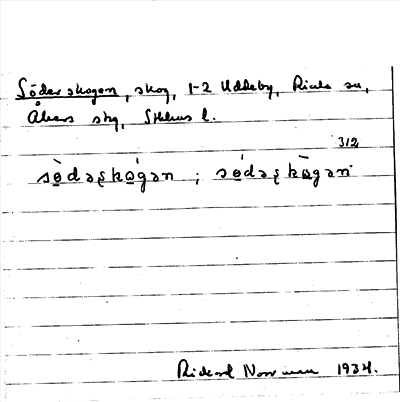 Söderskogen, skog, 1-2 Uddeby, Riala sn,
Åkers skg, Sthlms l.
312
sö̀dəʂkó̠gən ; só̠dəʂkò̠gən
Rickard 1934.